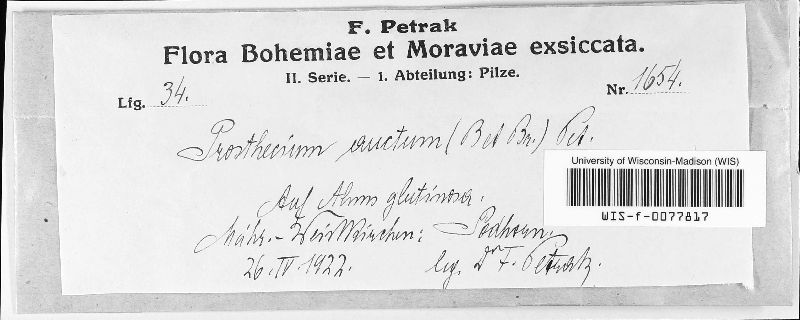 F. Petrak
Flora Bohemiae et Moraviae exsiccata.
II. Serie. — 1. Abteilung: Pilze.
Lfg. 34.
Nr. 1654.
Prosthecium auctum (B et Br.) Pet.
University of Wisconsin-Madison (WIS)
WIS-f-0077817
Auf Alnus glutinosa.
Mähr.-Weisskirchen: Podhorn.
26. IV. 1922. leg. Dr F. Petrak.